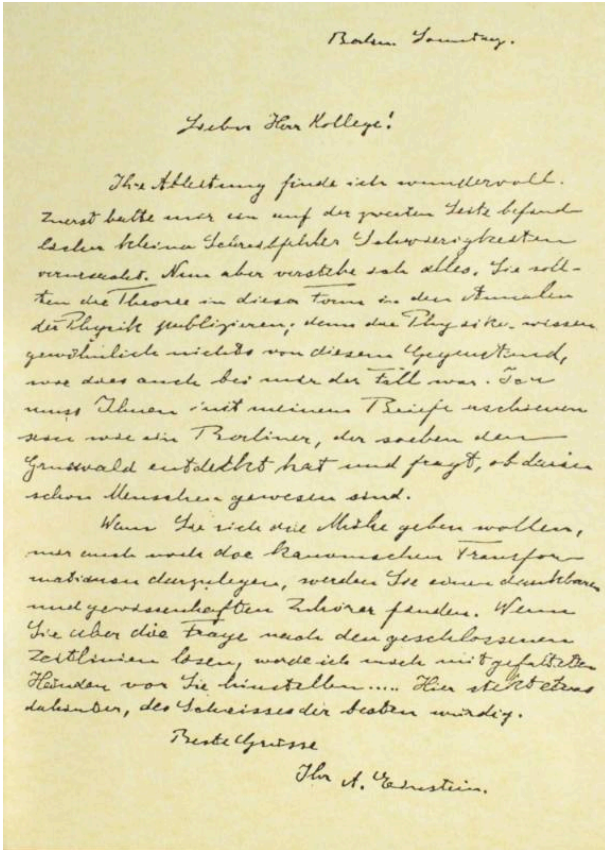 Berlin Sonntag.
Lieber Herr Kollege!
Ihre Ableitung finde ich wundervoll.
Zuerst hatte mir ein auf der zweiten Seite befind-
licher kleiner Schreibfehler Schwierigkeiten
verursacht. Nun aber verstehe ich alles. Sie soll-
ten die Theorie in dieser Form in den Annalen
der Physik publizieren; denn die Physiker wissen
gewöhnlich nichts von diesem Gegenstand,
wie dies auch bei mir der Fall war. Ich
muss Ihnen mit meinem Briefe erschienen
sein wie ein Berliner, der soeben den
Grunewald entdeckt hat und fragt, ob darin
schon Menschen gewesen sind.
Wenn Sie sich die Mühe geben wollen,
mir auch noch die kanonischen Transfor-
mationen darzulegen, werden Sie einen dankbaren
und gewissenhaften Zuhörer finden. Wenn
Sie aber die Frage nach den geschlossenen
Zeitlinien lösen, werde ich mich mit gefalteten
Händen vor Sie hinstellen..... Hier steckt etwas
dahinter, des Schweisses der besten würdig.
Beste Grüsse
Ihr A. Einstein.